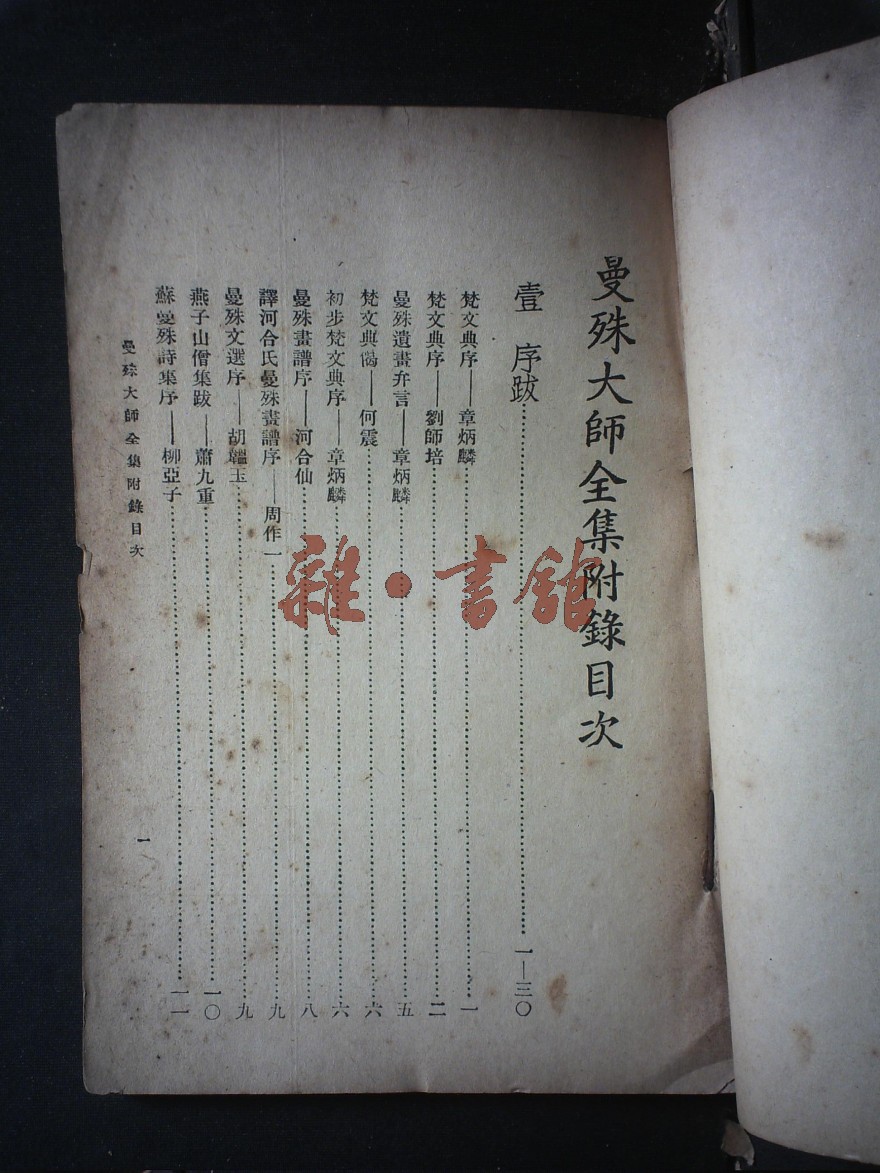 曼殊大師全集附錄目次
壹 序跋……一—三〇
梵文典序——章炳麟……一
梵文典序——劉師培……二
曼殊遺畫弁言——章炳麟……五
梵文典偈——何震……六
初步梵文典序——章炳麟……六
曼殊畫譜序——河合仙……八
譯河合氏曼殊畫譜序——周作一……九
曼殊文選序——胡韞玉……九
燕子山僧集跋——蕭九重……一〇
蘇曼殊詩集序——柳亞子……一一
曼殊大師全集附錄目次
一
雜·書館